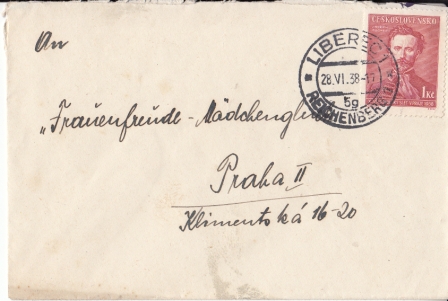 An
ČESKOSLOVENSKO
LIBEREC 1
28.VI.38-17
5g
REICHENBERG
1 Kč
„Frauenfreude - Mädchenglück"
Praha II
Klimentská 16-20